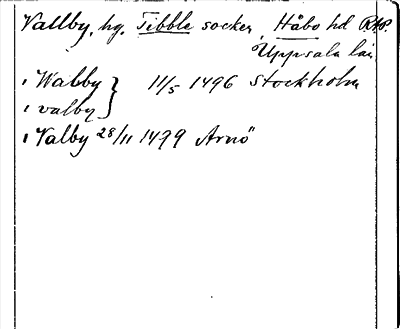 Vallby, hg. Tibble socken, Håbo hd RAP.
Uppsala län
i Walby } 11/5 1496 Stockholm
i valby
i Valby 28/11 1499 Arnö